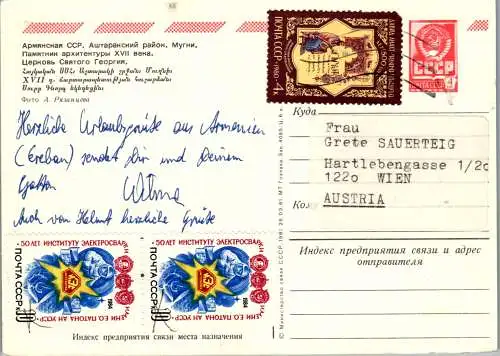 Армянская ССР. Аштаракский район. Мугни.
Памятник архитектуры XVII века.
Церковь Святого Георгия.
Հայկական ՍՍՀ Աշտարակի շրջան Մուղնի
XVII դ. Ճարտարապետության հուշարձան
Սուրբ Գևորգ եկեղեցին
Фото А. Рязанцева
Herzliche Urlaubsgrüße aus Armenien
(Ereban) sendet Dir und Deinem
Gatten
Wilma
Auch von Helmut herzliche Grüße
ПОЧТА СССР
50 ЛЕТ ИНСТИТУТУ ЭЛЕКТРОСВАРКИ
ИМЕНИ Е.О. ПАТОНА АН УССР
1984
ПОЧТА СССР 10
50 ЛЕТ ИНСТИТУТУ ЭЛЕКТРОСВАРКИ
ИМЕНИ Е.О. ПАТОНА АН УССР
1984
ПОЧТА СССР 10
Индекс предприятия связи места назначения
ПОЧТА СССР 1980 4К
СССР
4
Куда
Frau
Grete SAUERTEIG
Hartlebengasse 1/2c
1220 WIEN
AUSTRIA
Индекс предприятия связи и адрес
отправителя
© Министерство связи СССР